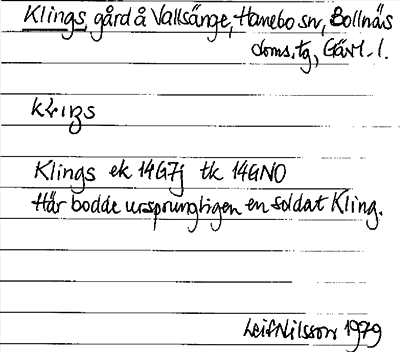 Klings, gård å Vallsänge, Hanebo sn, Bollnäs
doms.tg, Gävl. l.
Klings ek 14G7j tk 14GNO
Här bodde ursprungligen en soldat Kling.
Leif Nilsson 1979